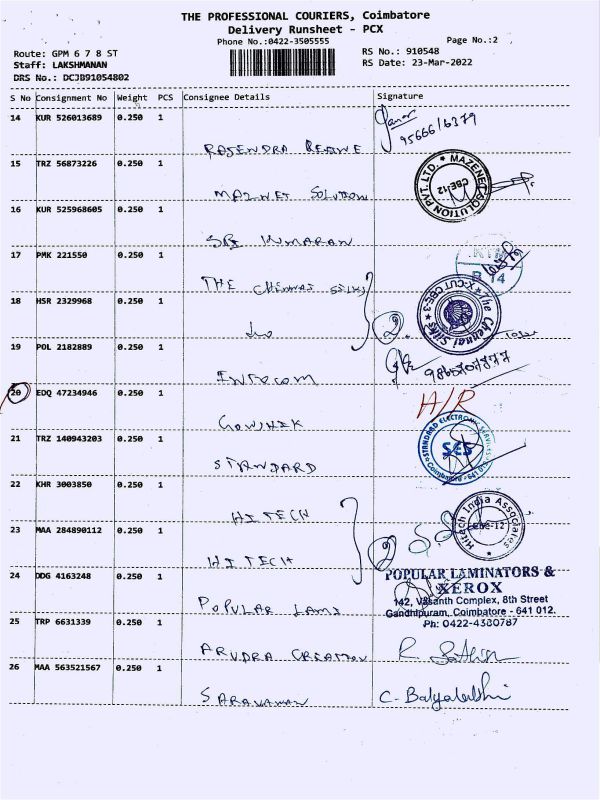 THE PROFESSIONAL COURIERS, Coimbatore
Delivery Runsheet - PCX
Phone No.:0422-3505555
Page No.:2
Route: GPM 6 7 8 ST
RS No.: 910548
Staff: LAKSHMANAN
RS Date: 23-Mar-2022
DRS No.: DCJB91054802
S No Consignment No Weight PCS Consignee Details Signature
14 KUR 526013689 0.250 1
RAJENDRA
15 TRZ 56873226 0.250 1
MAZENET SOLUTION PVT. LTD. ★
CBE-12
MAZNET SOLUTION
16 KUR 525968605 0.250 1
SRI KUMARAN
17 PMK 221550 0.250 1
THE CHENNAI SILKS
18 HSR 2329968 0.250 1
The Chennai Silks ★ X-CUT CBE-3 ★
do
2.
19 POL 2182889 0.250 1
INFOCOM
20 EDQ 47234946 0.250 1
H/R
GOWHIK
21 TRZ 140943203 0.250 1
STANDARD ELECTRONIC SERVICES
SES
Coimbatore - 641 012
STANDARD
22 KHR 3003850 0.250 1
HITECH
23 MAA 284890112 0.250 1
Hitech India Associates
CBE-12
2
HITECH
24 DDG 4163248 0.250 1
POPULAR LAMINATORS &
XEROX
142, Vasanth Complex, 8th Street
Gandhipuram, Coimbatore - 641 012.
Ph: 0422-4380787
POPULAR LAMI
25 TRP 6631339 0.250 1
ARUDRA CREATION
26 MAA 563521567 0.250 1
SARAVANAN